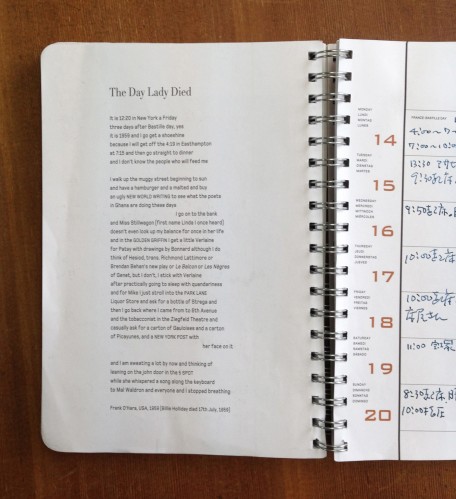 The Day Lady Died
It is 12:20 in New York a Friday
three days after Bastille day, yes
it is 1959 and I go get a shoeshine
because I will get off the 4:19 in Easthampton
at 7:15 and then go straight to dinner
and I don't know the people who will feed me
I walk up the muggy street beginning to sun
and have a hamburger and a malted and buy
an ugly NEW WORLD WRITING to see what the poets
in Ghana are doing these days
I go on to the bank
and Miss Stillwagon (first name Linda I once heard)
doesn't even look up my balance for once in her life
and in the GOLDEN GRIFFIN I get a little Verlaine
for Patsy with drawings by Bonnard although I do
think of Hesiod, trans. Richmond Lattimore or
Brendan Behan's new play or Le Balcon or Les Nègres
of Genet, but I don't, I stick with Verlaine
after practically going to sleep with quandariness
and for Mike I just stroll into the PARK LANE
Liquor Store and ask for a bottle of Strega and
then I go back where I came from to 6th Avenue
and the tobacconist in the Ziegfeld Theatre and
casually ask for a carton of Gauloises and a carton
of Picayunes, and a NEW YORK POST with
her face on it
and I am sweating a lot by now and thinking of
leaning on the john door in the 5 SPOT
while she whispered a song along the keyboard
to Mal Waldron and everyone and I stopped breathing
Frank O'Hara, USA, 1959 (Billie Holiday died 17th July, 1959)
MONDAY
LUNDI
MONTAG
LUNES
14
4:00~7
7:00~10:0
TUESDAY
MARDI
DIENSTAG
MARTES
15
13:30
9:30
WEDNESDAY
MERCREDI
MITTWOCH
MIERCOLES
16
9:50
THURSDAY
JEUDI
DONNERSTAG
JUEVES
17
10:00
FRIDAY
VENDREDI
FREITAG
VIERNES
18
10:00
床屋さん
SATURDAY
SAMEDI
SAMSTAG
SABADO
19
11:00
SUNDAY
DIMANCHE
SONNTAG
DOMINGO
20
8:30
10:00